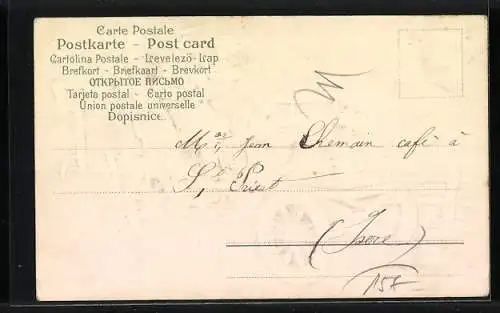 Carte Postale
Postkarte - Post card
Cartolina Postale - Levelező-Lap
Brefkort - Briefkaart - Brevkort
ОТКРЫТОЕ ПИСЬМО
Tarjeta postal - Carto postal
Union postale universelle
Dopisnice.
Jean Chemain café à
St Priest
(Isère)
157